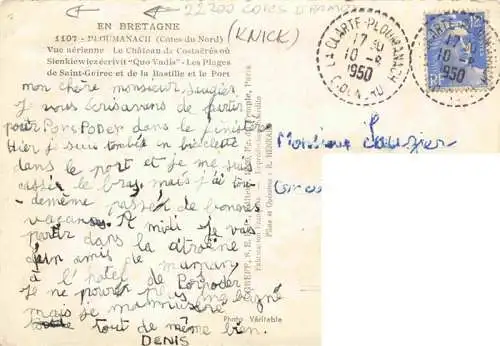 22700 COTES D'ARMOR
(KNICK)
EN BRETAGNE
1107 - PLOUMANACH (Côtes du Nord)
Vue aérienne Le Château de Costaérès où
Sienkiewiez écrivit "Quo Vadis" - Les Plages
de Saint-Guirec et de la Bastille et le Port
LA CLARTÉ-PLOUMANACH
17 30
10 - 8
1950
C. DU NORD
17
10 - 8
1950
mon chère monsieur
Je vous écris avant de partir
pour PORSPODER dans le finistère
Hier je suis tombé en bicyclette
dans le port et je me suis
cassé le bras, mais j'ai tou
de même passée de bonnes
vacances. A midi Je vais
partir dans la citroëne
d'un ami de maman,
a l'hotel de Porspoder
Je ne pourrer plus me baigné
mais je m'amuserer
tout de même bien.
DENIS
Photo Véritable
Monsieur